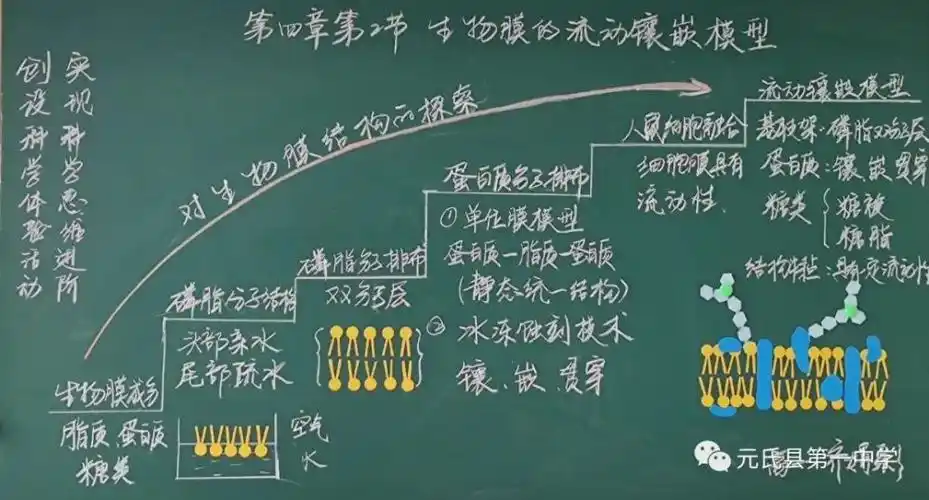 第四章第2节 生物膜的流动镶嵌模型
创设科学体验活动
实现科学思维进阶
对生物膜结构的探索
生物膜成分
脂质、蛋白质
糖类
空气
水
磷脂分子结构
头部亲水
尾部疏水
磷脂分子排布
双分子层
蛋白质分子排布
①单位膜模型
蛋白质-脂质-蛋白质
(静态统一结构)
② 冰冻蚀刻技术
镶、嵌、贯穿
人鼠细胞融合
细胞膜具有
流动性
流动镶嵌模型
基本支架:磷脂双分子层
蛋白质:镶、嵌、贯穿
糖类
糖被
糖脂
结构特点:具有一定流动性
元氏县第一中学